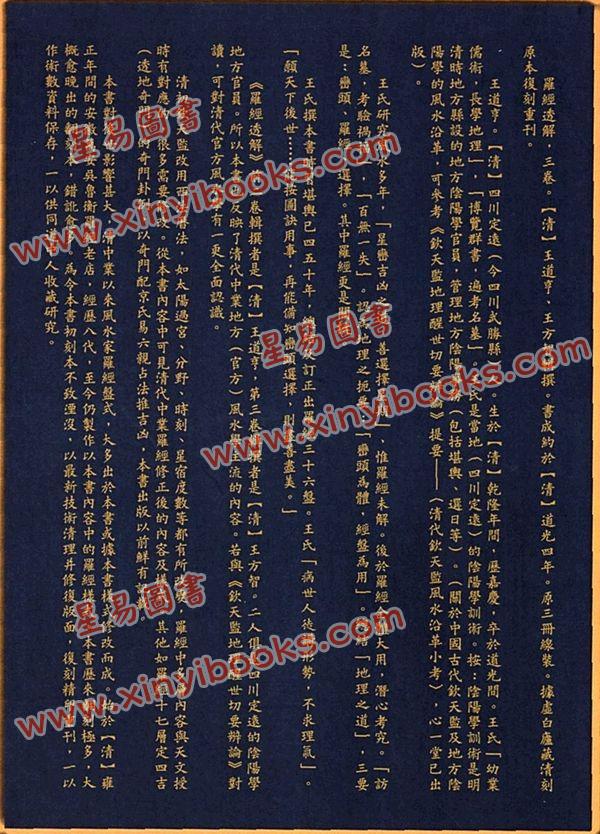 羅經透解，三卷。【清】王道亨、王方撰。書成約於【清】道光四年。原三冊線裝。據虛白廬藏清刻
原本復刻重刊。
王道亨。【清】四川定遠（今四川武勝縣）人。生於【清】乾隆年間，歷嘉慶，卒於道光間。王氏「幼業
儒術，長學地理」，「博覽群書，遍考名墓」，氏是當地（四川定遠）的陰陽學訓術。按：陰陽學訓術是明
清時地方縣設的地方陰陽學官員，管理地方陰陽（包括堪輿、選日等）。（關於中國古代欽天監及地方陰
陽學的風水沿革，可參考《欽天監地理醒世切要》提要——（清代欽天監風水沿革小考），心一堂已出
版）。
王氏研究多年，「星巒吉凶之善選擇」，惟羅經未解。後於羅經大用，潛心考究。「訪
名墓，考驗禍」，「百無一失」。認地理之扼要「巒頭為體，經盤為用」。結「地理之道」，三要
是：巒頭、羅經選擇。其中羅經更是
王氏撰本書時堪輿已四五十年，訂正出羅三十六盤。王氏「病世人徒形勢，不求理氣」。
「願天下後世……按圖訣用事，再能備知巒頭選擇，則善盡美。」
《羅經透解》卷輯撰者是【清】王道亨，第三卷撰者是【清】王方智。二人俱四川定遠的陰陽學
地方官員。所以本書也反映了清代中業地方（官方）風水學主流的內容。若與《欽天監地理醒世切要辯論》對
讀，可對清代官方風有一更全面認識。
清初監改用西曆法，如太陽過宮、分野、時刻、星宿度數等都有所改變。羅經中多內容與天文授
時有對應，很多需要改。從本書內容中可見清代中業羅經修正後的內容及樣。其他如羅十七層定四吉
（透地奇門），奇門卦以奇門配京氏易六親占法推吉凶，本書出版以前鮮有
本書對影響甚大，清中業以來風水家羅經盤式，大多出於本書或據本書樣式修改而成。於【清】雍
正年間的安徽安吳魯衡羅老店，經歷八代，至今仍製作以本書內容中的羅經樣。本書歷來刻極多，大
概愈晚出的本，錯訛愈多。為令本書初刻本不致湮沒，以最新技術清理并修復版面，復刻精刊，一以
作術數資料保存，一以供同道人收藏研究。
星易圖書
www.xinyibooks.com
星易圖書
www.xinyibooks.com
星易圖書
www.xinyibooks.com
星易圖書
www.xinyibooks.com